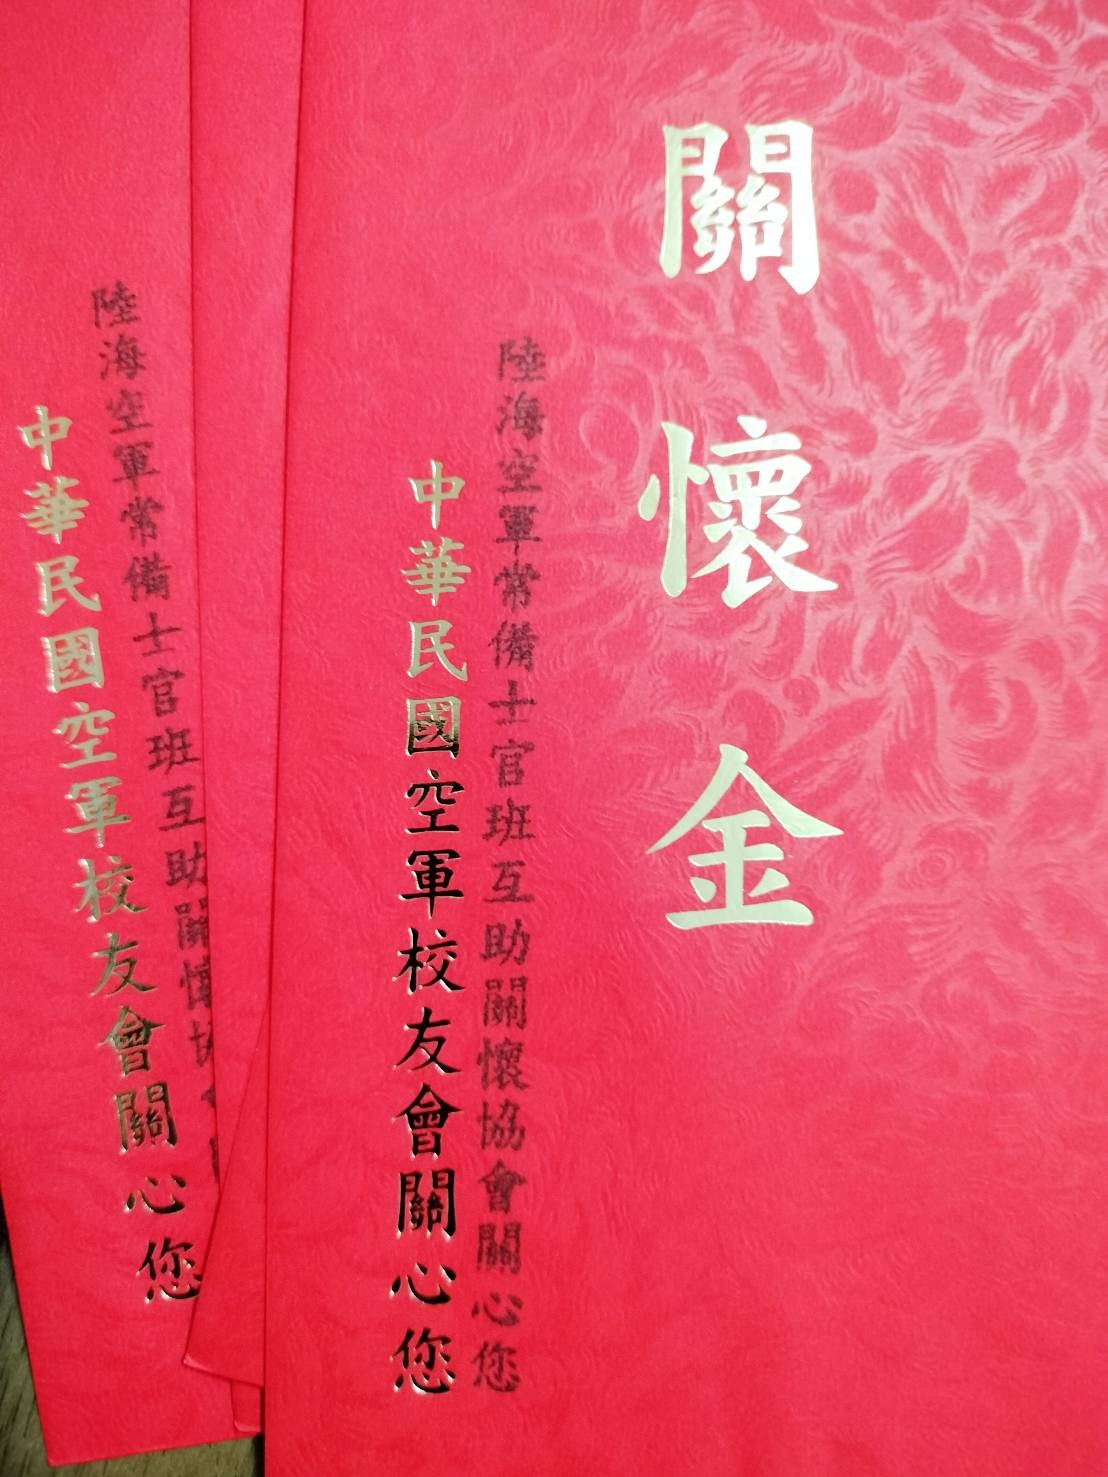 關懷金
陸海空軍常備士官班互助關懷協會關心您
中華民國空軍校友會關心您
陸海空軍常備士官班互助關懷協會
中華民國空軍校友會關心您